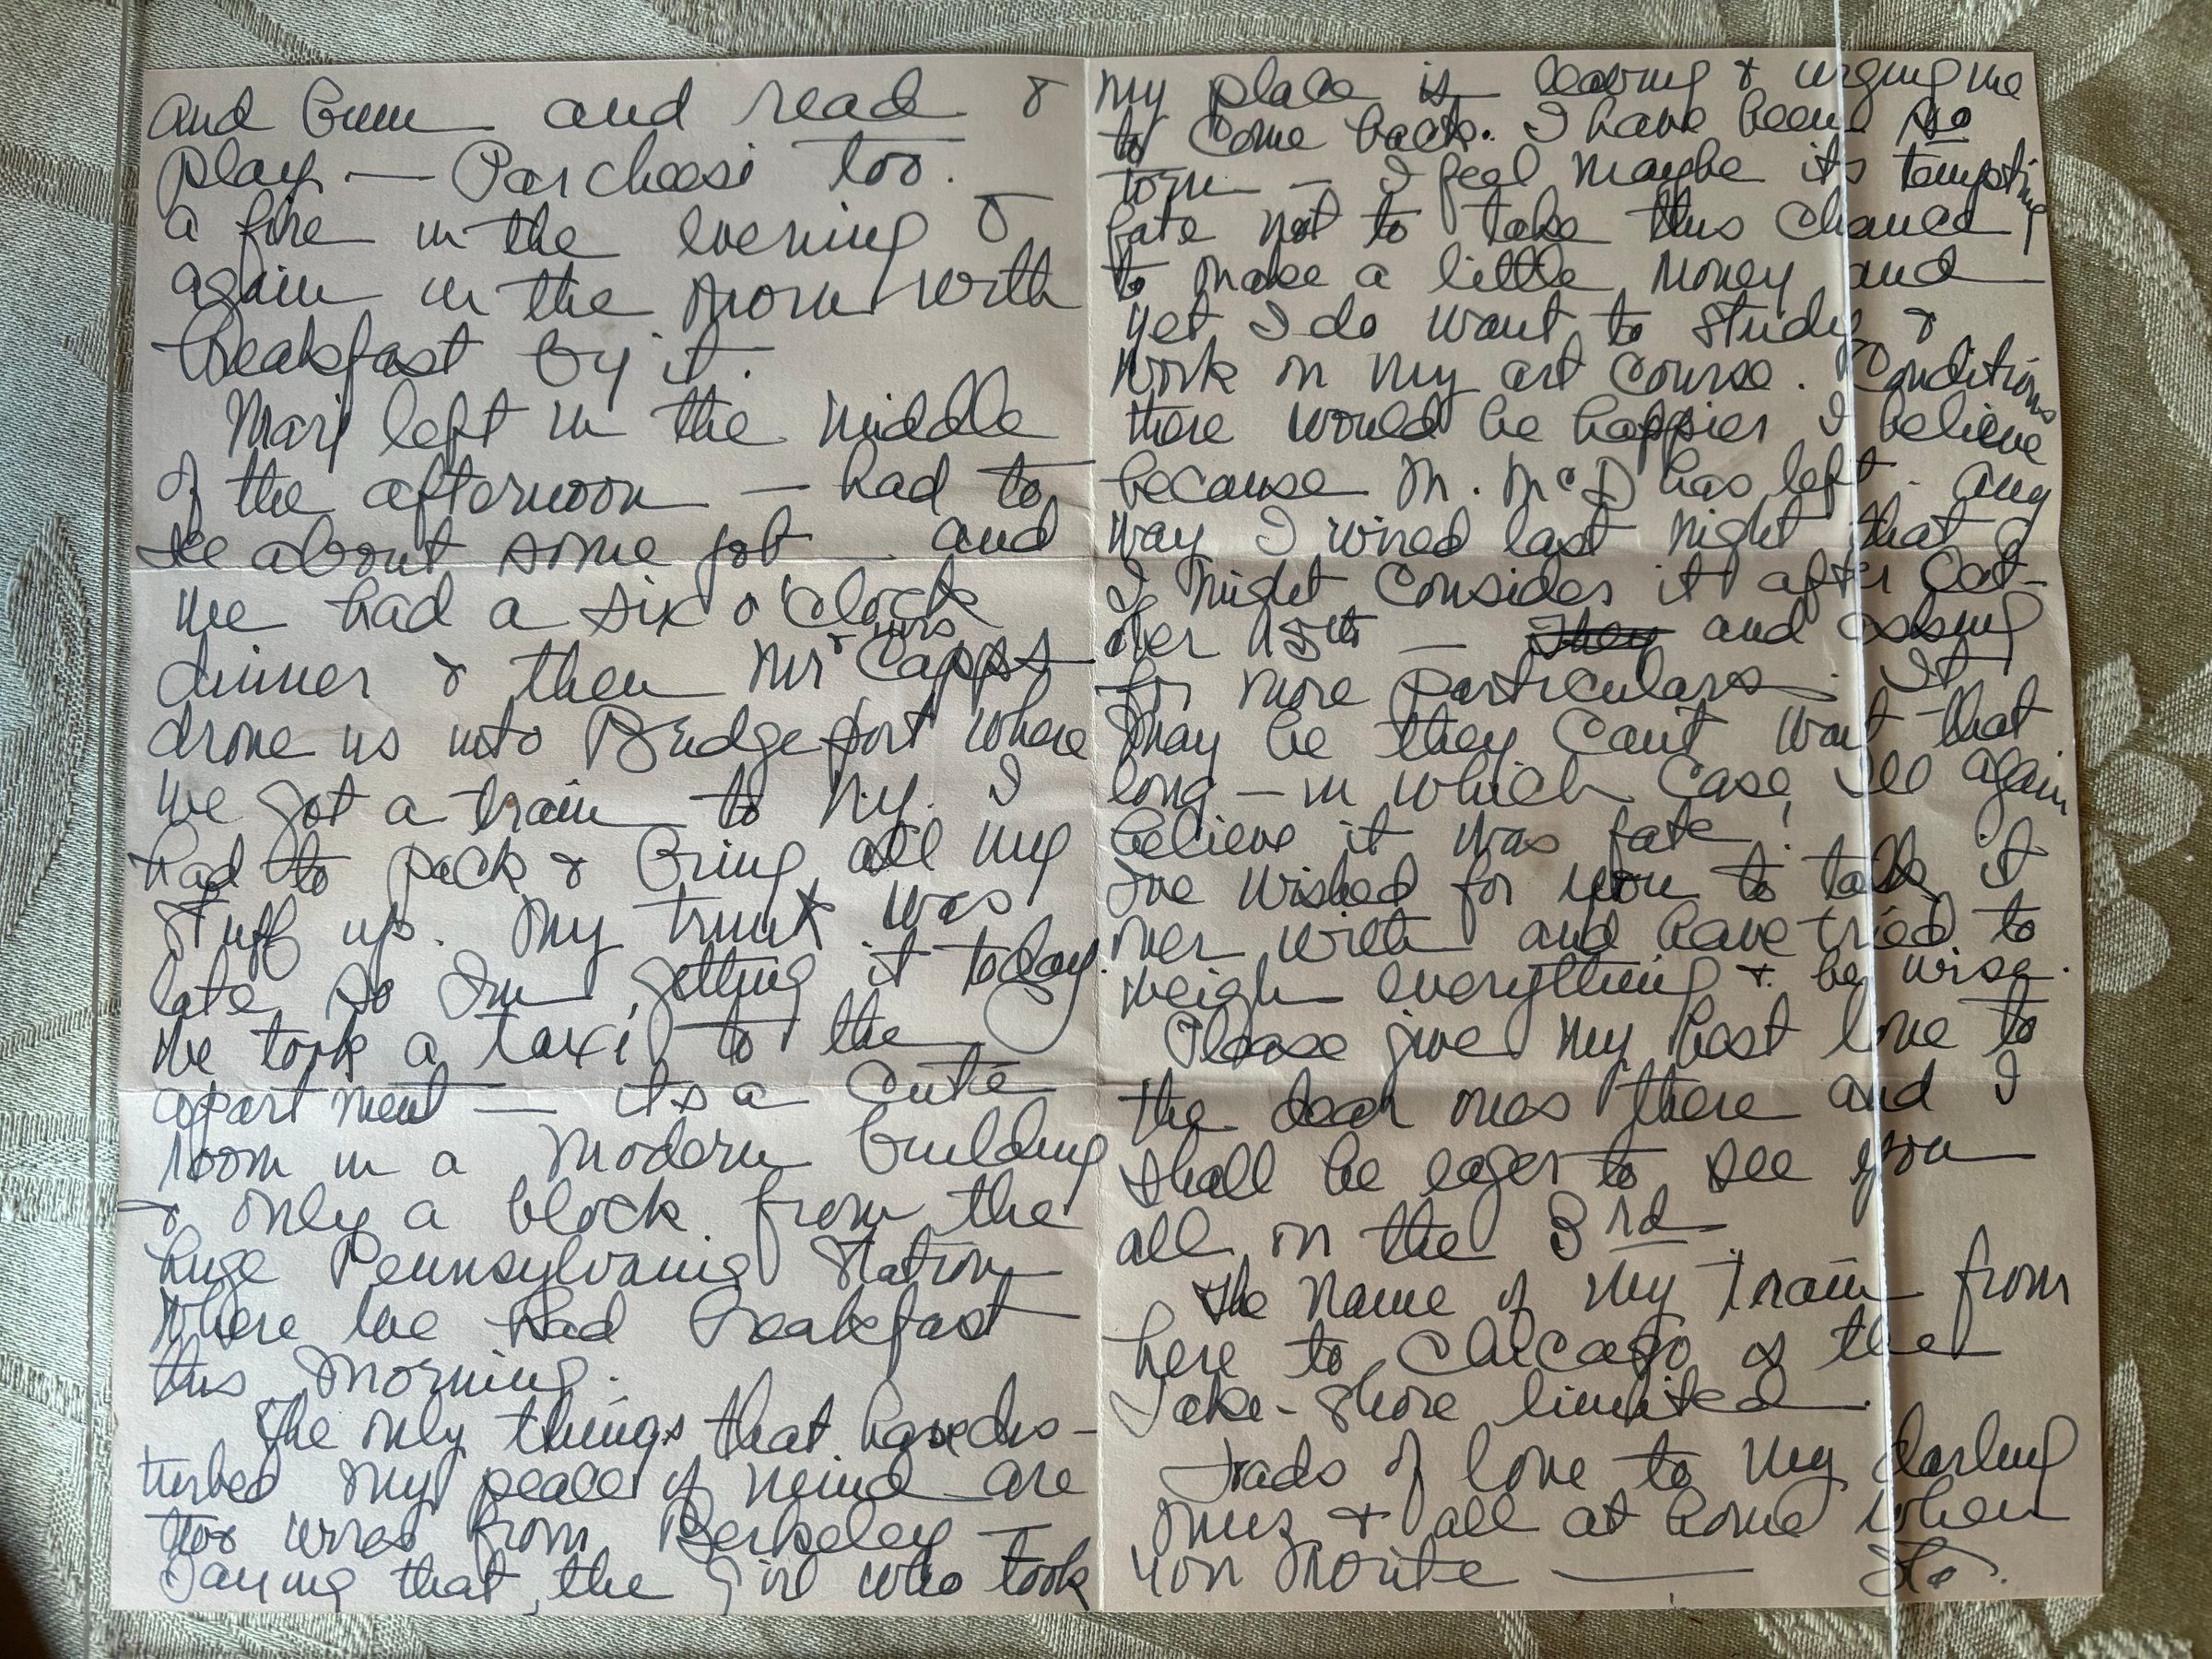 and Gum and read &
play — Parcheesi too.
a fire in the evening &
again in the morn with
breakfast by it.
Marj left in the middle
of the afternoon — had to
see about some job — and
we had a six o'clock
dinner & then Mr & Mrs Capps
drove us into Bridgeport where
we got a train to N.Y. I
had to pack & bring all my
stuff up. My trunk was
late so I'm getting it today.
We took a taxi to the
apartment — its a cute
room in a modern building
& only a block from the
huge Pennsylvania Station
where we had breakfast
this morning.
The only things that have dis-
turbed my peace of mind are
two wires from Berkeley —
saying that the girl who took
my place is leaving & urging me
to come back. I have been so
torn — I feel maybe its tempting
fate not to take this chance
to make a little money and
yet I do want to study &
work on my art course. Conditions
there would be happier I believe
because M. McD has left. Any
way I wired last night that
I might consider it after Oct-
ober 15th — They and asking
for more particulars. It
may be they can't wait that
long — in which case I'll again
believe it was fate!
I've wished for you to talk it
over with and have tried to
weigh everything & be wise.
Please give my best love to
the dear ones there and I
shall be eager to see you
all on the 3rd
The name of my train from
here to Chicago is the
Lake-Shore limited.
Loads of love to my darling
& all at home when
you write —